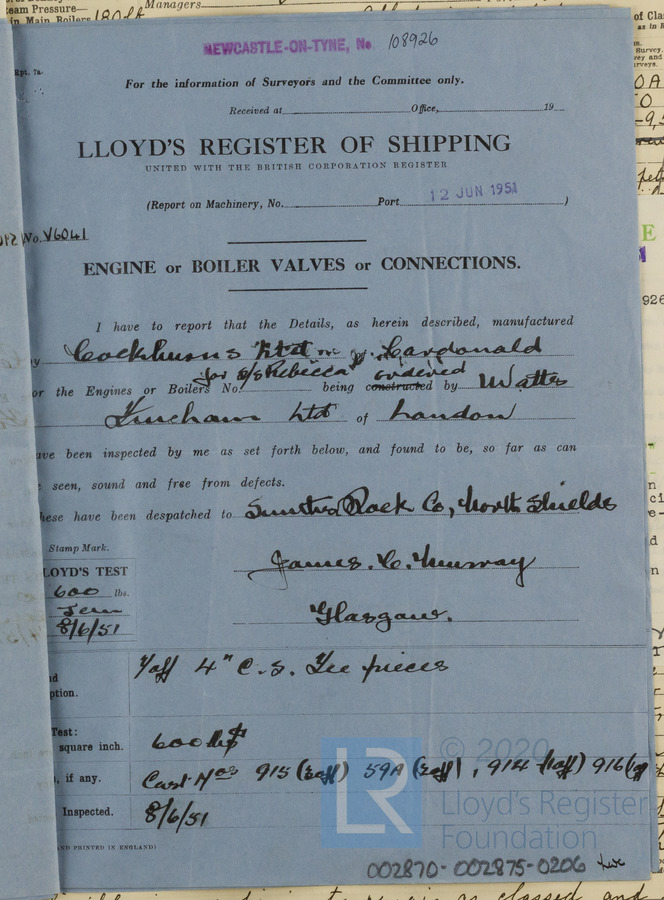 eam Pressure—
Managers
in Main Boilers 180 lb
NEWCASTLE-ON-TYNE, No. 108926
Rpt. 7a.
For the information of Surveyors and the Committee only.
Received at Office, 19
LLOYD'S REGISTER OF SHIPPING
UNITED WITH THE BRITISH CORPORATION REGISTER
(Report on Machinery, No. Port 12 JUN 1951 )
No. V6041
ENGINE or BOILER VALVES or CONNECTIONS.
I have to report that the Details, as herein described, manufactured
y Cockburns Ltd of Cardonald
for S/S "Rebecca" ordered
or the Engines or Boilers No. being constructed by Watts
Ltd of London
ave been inspected by me as set forth below, and found to be, so far as can
e seen, sound and free from defects.
hese have been despatched to Smiths Dock Co, North Shields
Stamp Mark.
LOYD'S TEST
600 lbs.
JCM
8/6/51
James. C. Murray
Glasgow.
nd
ption.
7 off 4" C.S. Tee pieces
Test:
square inch.
600 lbs
, if any.
Cast Nos 915 (3 off) 59A (2 off), 914 (1 off) 916 (1 off
Inspected.
8/6/51
AND PRINTED IN ENGLAND)
LR
© 2020
Lloyd's Register
Foundation
002870-002875-0206
of Clas
Survey.
vey and
urveys.
OA
926